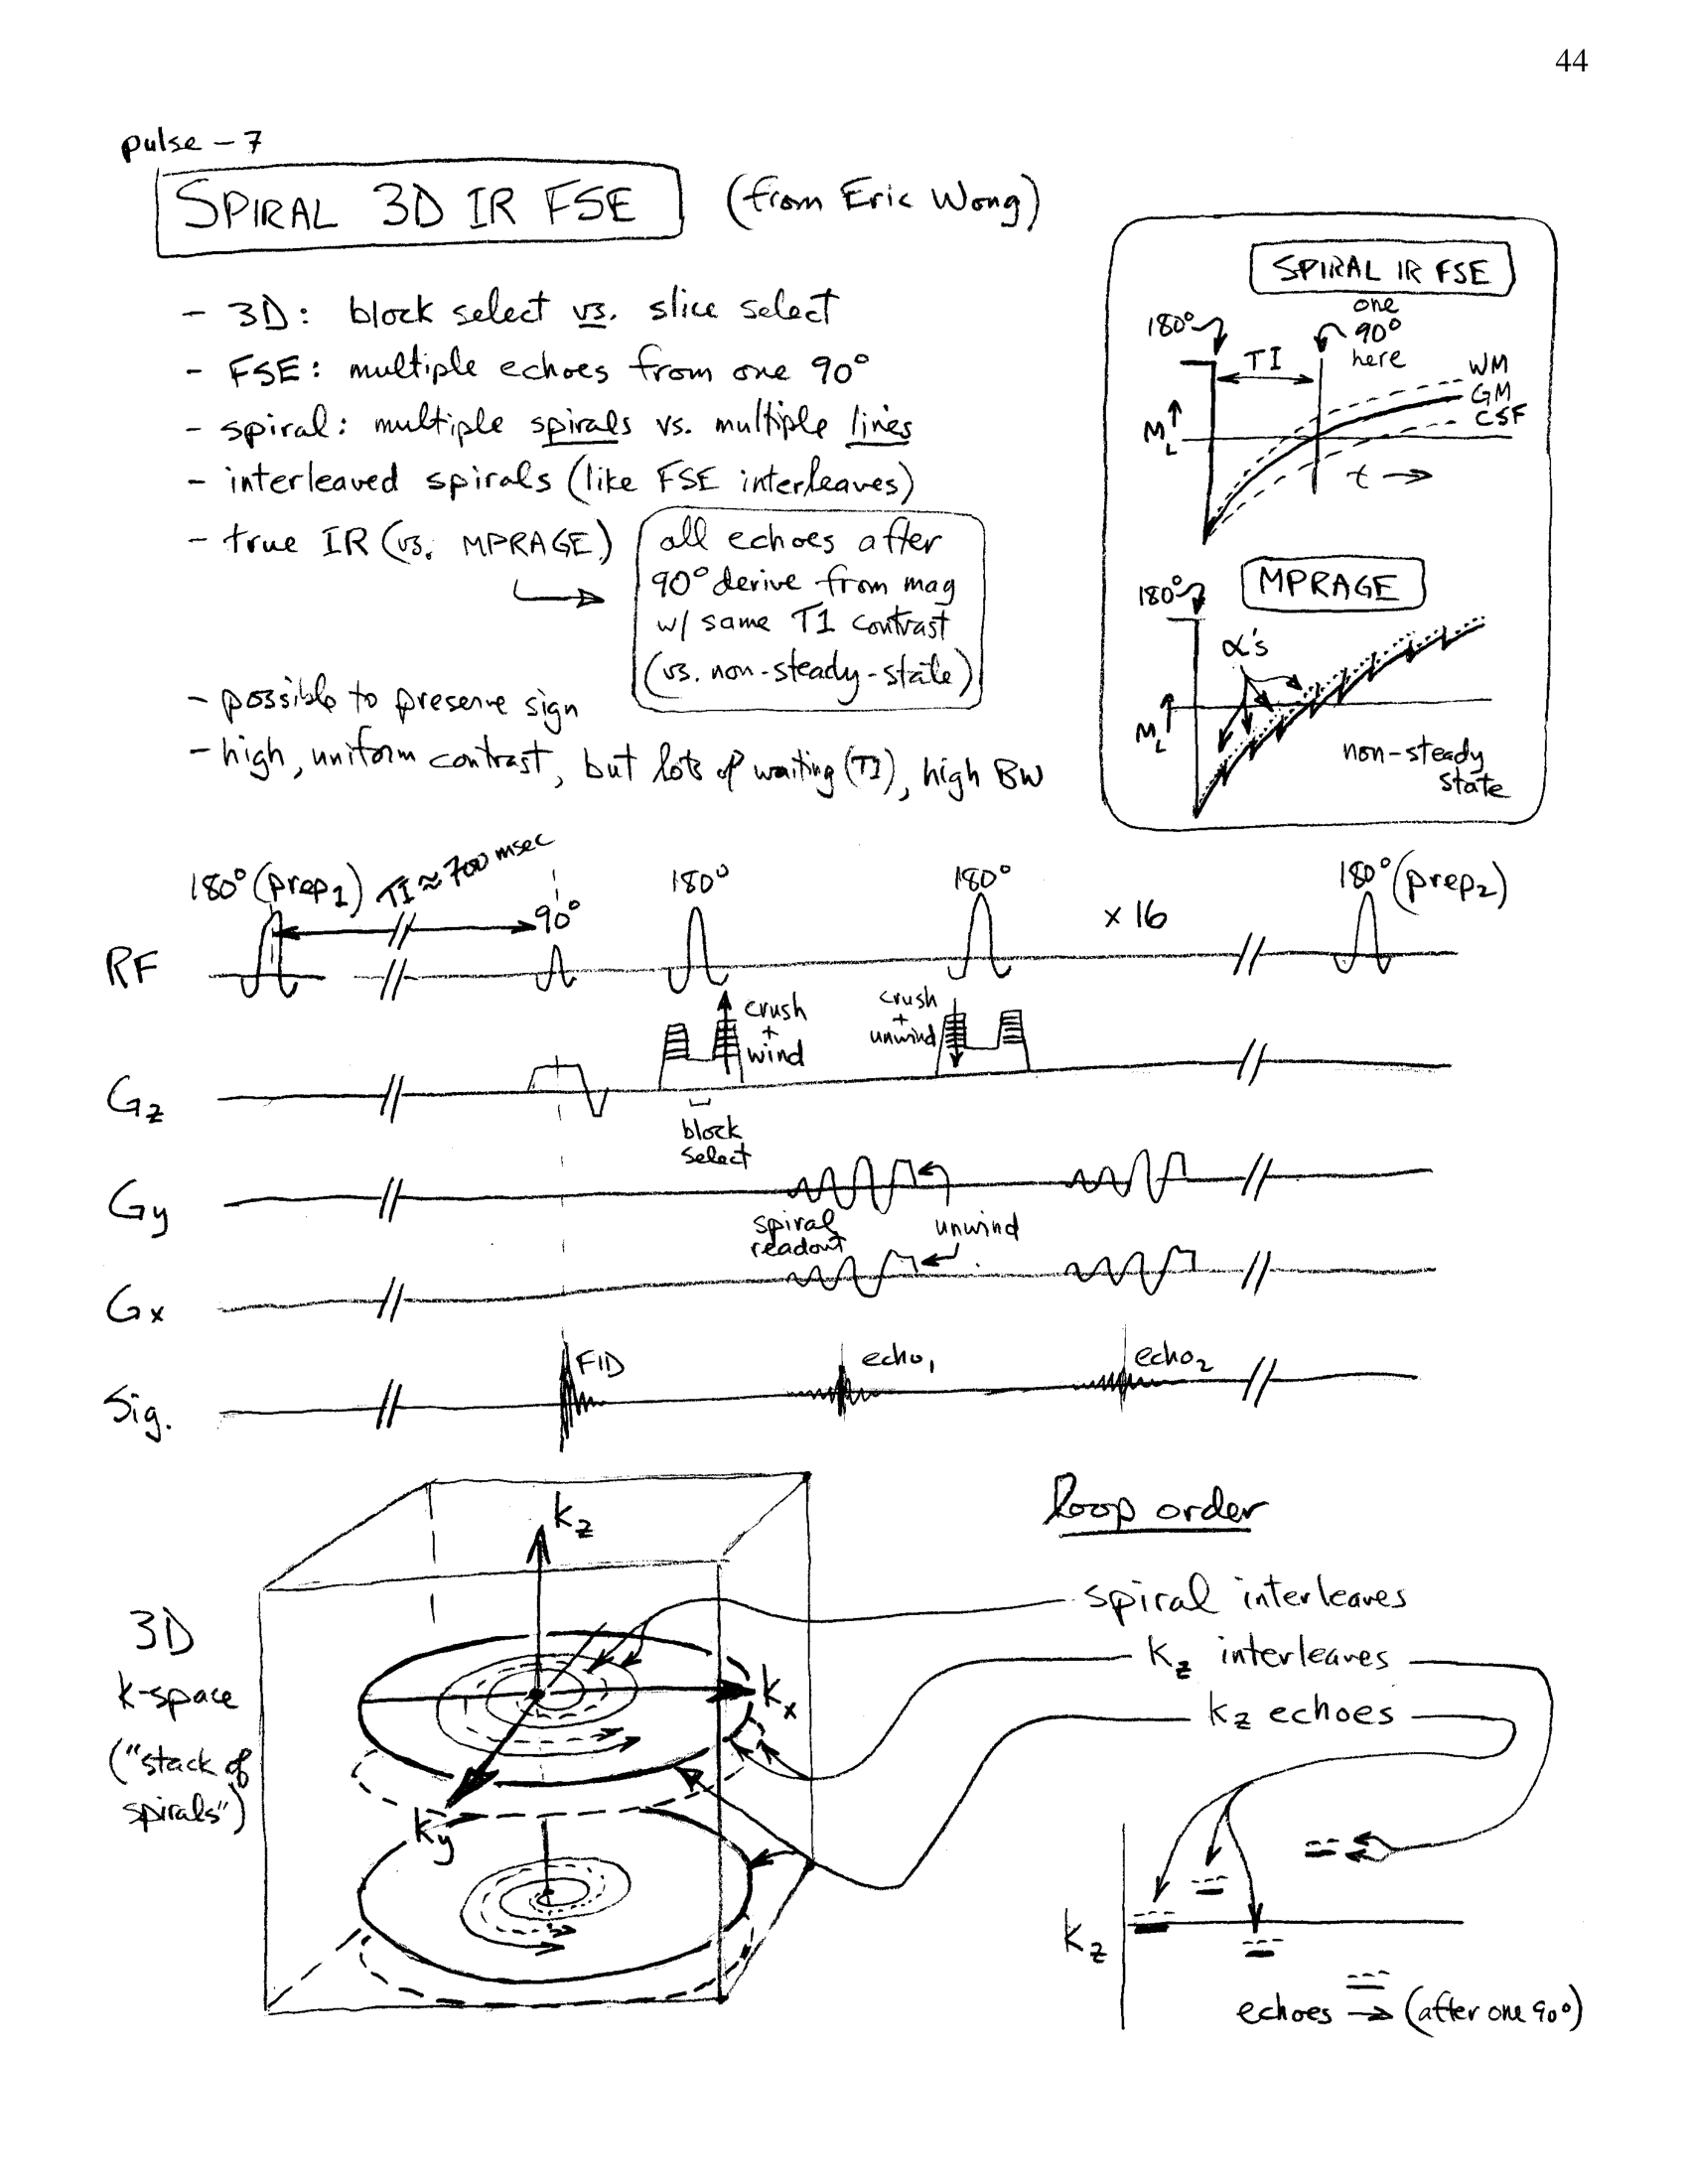 44
pulse - 7
SPIRAL 3D IR FSE (from Eric Wong)
- 3D: block select vs. slice select
- FSE: multiple echoes from one 90°
- spiral: multiple spirals vs. multiple lines
- interleaved spirals (like FSE interleaves)
- true IR (vs. MPRAGE)
all echoes after
90° derive from mag
w/ same T1 contrast
(vs. non-steady-state)
- possible to preserve sign
- high, uniform contrast, but lots of waiting (TI), high BW
SPIRAL IR FSE
180°
one
90°
here
TI
WM
GM
CSF
M_L
t
MPRAGE
180°
α's
M_L
non-steady
state
180° (prep1)
TI ≈ 700 msec
90°
180°
180°
x 16
180° (prep2)
RF
crush
+
wind
crush
+
unwind
Gz
block
select
Gy
spiral
readout
unwind
Gx
FID
echo1
echo2
Sig.
loop order
kz
3D
k-space
("stack of
spirals")
kx
ky
spiral interleaves
kz interleaves
kz echoes
kz
echoes → (after one 90°)